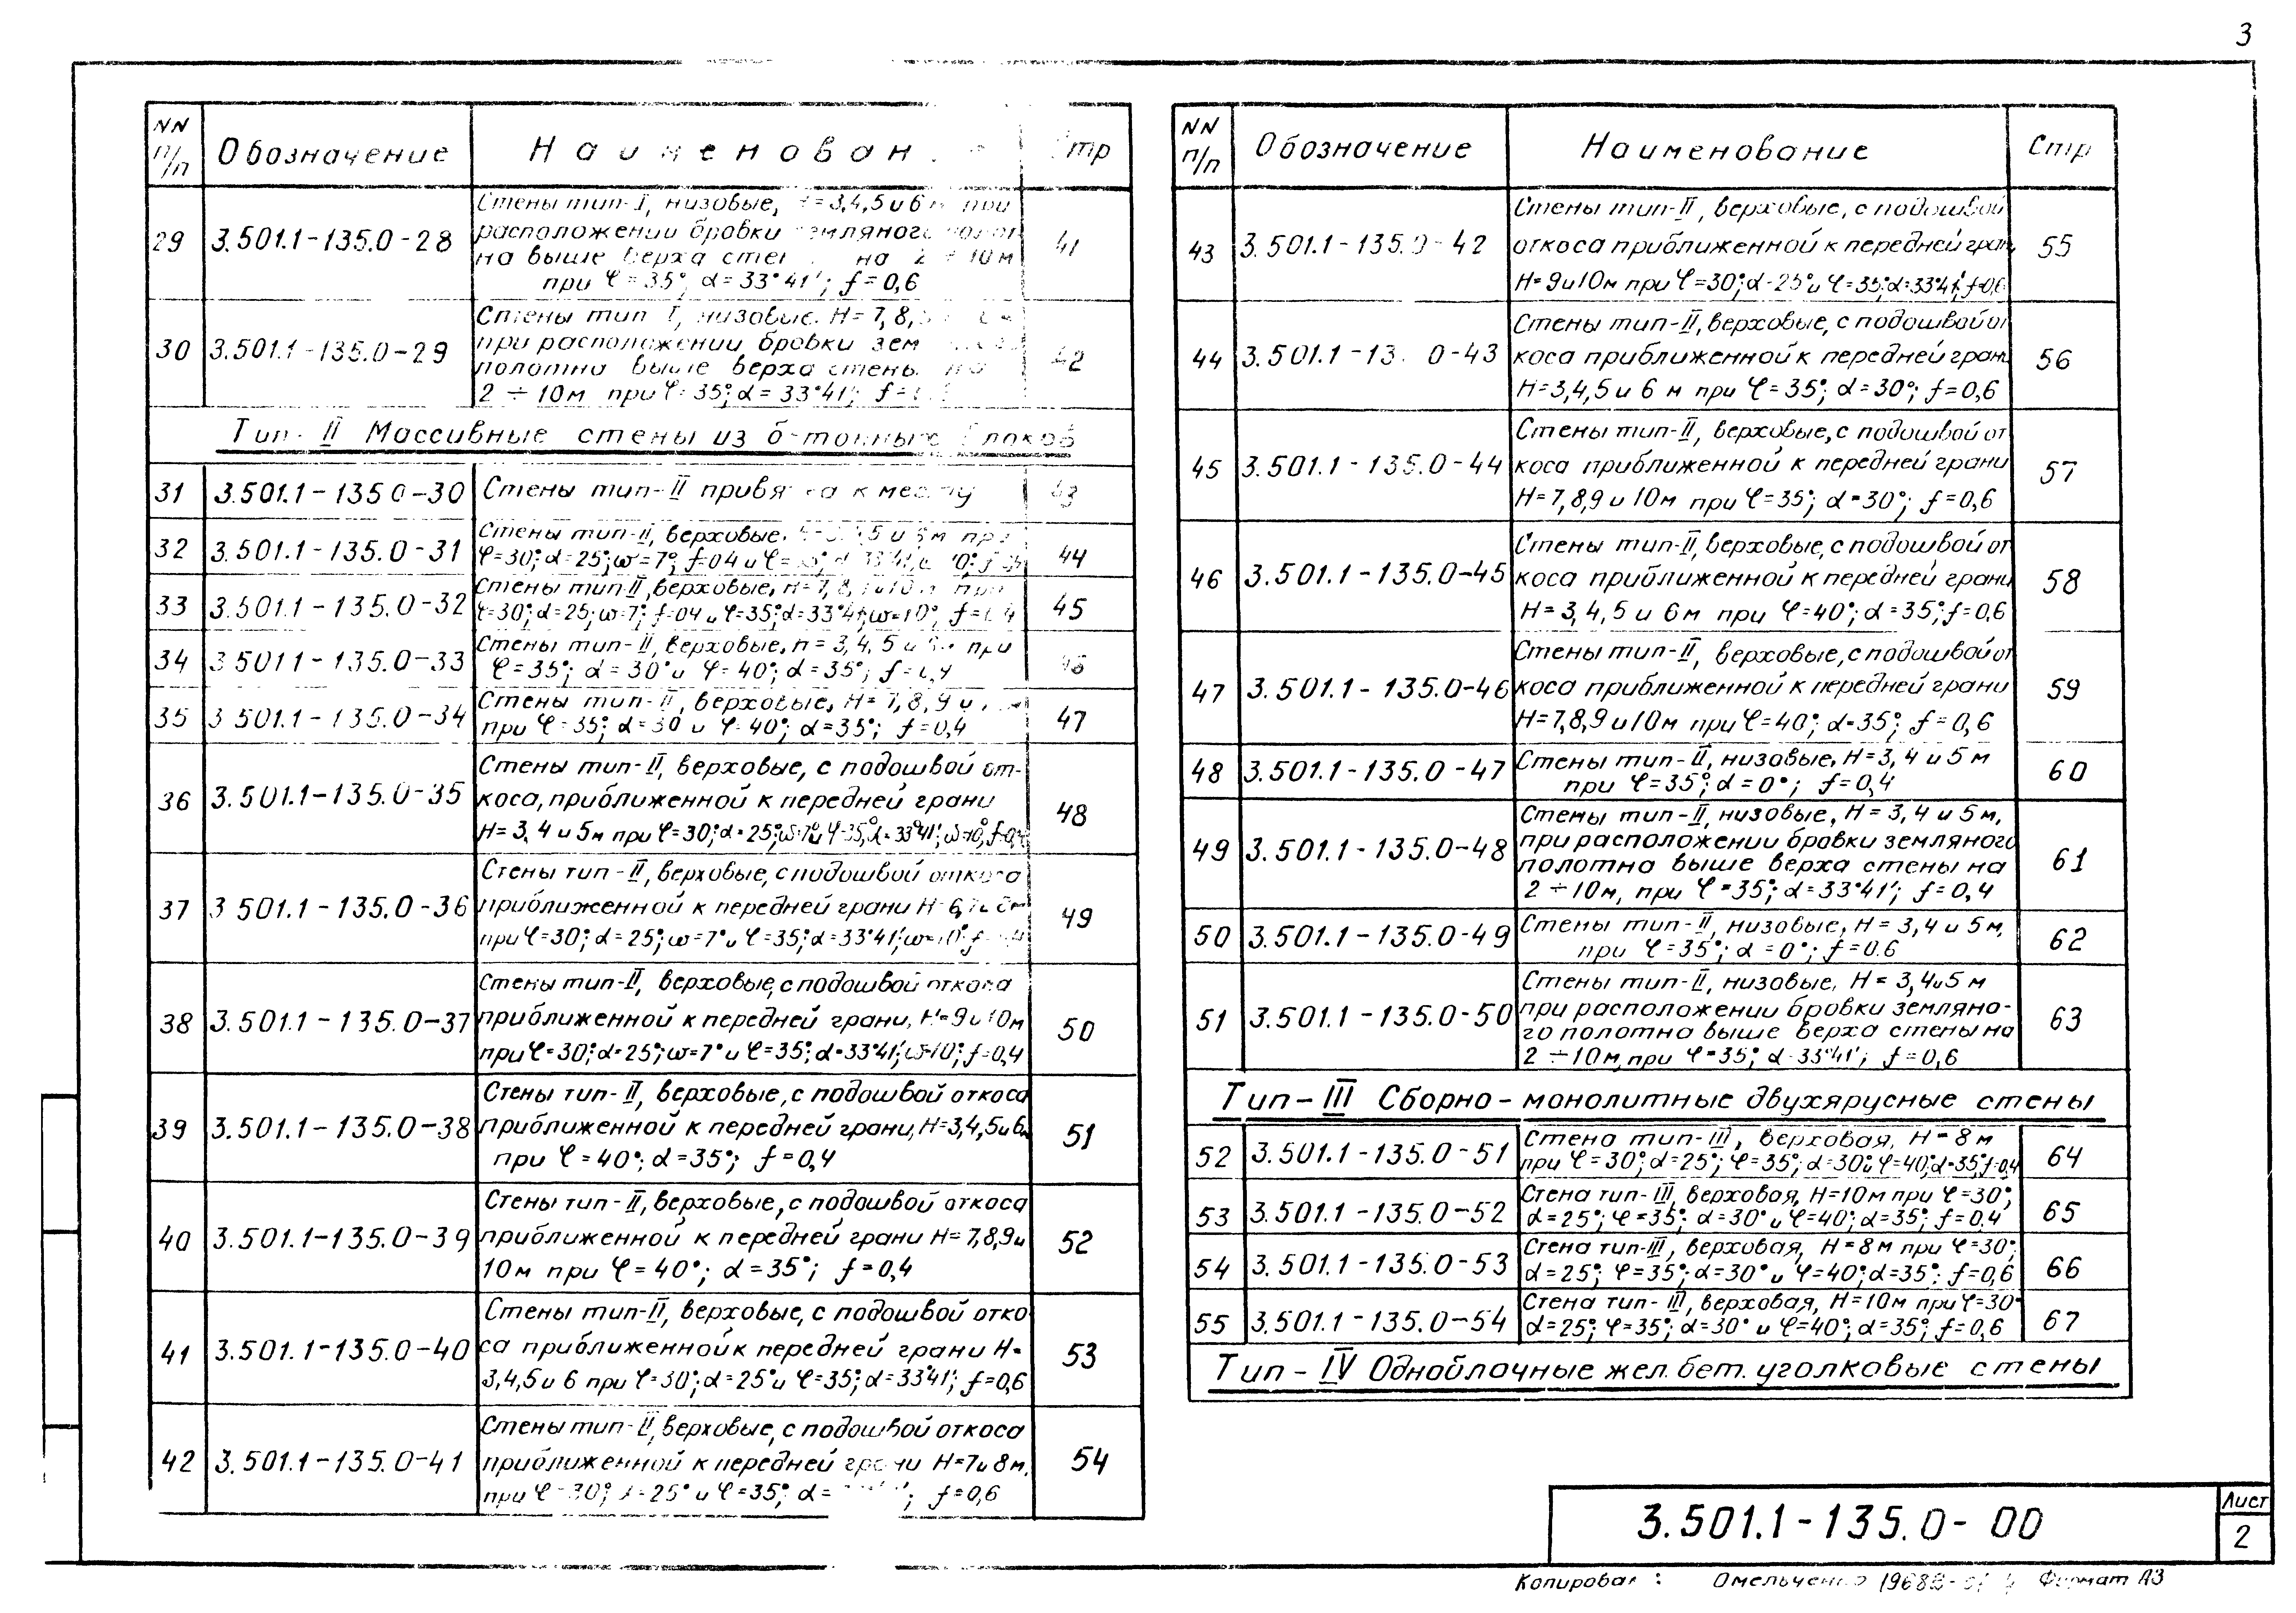 3
NN п/п Обозначение Наименован Стр
29 3.501.1-135.0-28 Стены тип-I, низовые, H=3,4,5 и 6 м при
расположении бровки земляного
на выше верха стен на 2 ÷ 10м
при φ=35°, α=33°41'; f=0,6 41
30 3.501.1-135.0-29 Стены тип I, низовые. H=7,8,
при расположении бровки зем
полотна выше верха стены на
2 ÷ 10м при φ=35°; α=33°41'; f= 42
Тип-II Массивные стены из бетонных блоков
31 3.501.1-135.0-30 Стены тип-II привязка к месту 43
32 3.501.1-135.0-31 Стены тип-II, верховые. 5 и 6м при
φ=30°; α=25°; ω=7°; f=0,4 и φ=35°; α=33°41'; 44
33 3.501.1-135.0-32 Стены тип-II, верховые, H=7,8, и 10м при
φ=30°; α=25°; ω=7°; f=0,4 и φ=35°; α=33°41'; ω=10°, f=0,4 45
34 3.501.1-135.0-33 Стены тип-II, верховые, H=3,4,5 и 6м при
φ=35°; α=30° и φ=40°; α=35°, f=0,4 46
35 3.501.1-135.0-34 Стены тип-II, верховые, H=7,8,9 и
при φ=35°; α=30 и φ=40°; α=35°; f=0,4 47
36 3.501.1-135.0-35 Стены тип-II, верховые, с подошвой от-
коса, приближенной к передней грани
H=3,4 и 5м при φ=30°; α=25°; ω=7° и φ=35°, α=33°41'; ω=10°, f=0,4 48
37 3.501.1-135.0-36 Стены тип-II, верховые, с подошвой откоса
приближенной к передней грани H=6,7 и 8м
при φ=30°; α=25°; ω=7° и φ=35°; α=33°41'; ω=10°; f=0,4 49
38 3.501.1-135.0-37 Стены тип-II, верховые, с подошвой откоса
приближенной к передней грани, H=9 и 10м
при φ=30°; α=25°; ω=7° и φ=35°; α=33°41'; ω=10°; f=0,4 50
39 3.501.1-135.0-38 Стены тип-II, верховые, с подошвой откоса
приближенной к передней грани, H=3,4,5 и 6м
при φ=40°; α=35°; f=0,4 51
40 3.501.1-135.0-39 Стены тип-II, верховые, с подошвой откоса
приближенной к передней грани H=7,8,9 и
10м при φ=40°; α=35°; f=0,4 52
41 3.501.1-135.0-40 Стены тип-II, верховые, с подошвой отко
са приближенной к передней грани H=
3,4,5 и 6 при φ=30°; α=25° и φ=35°; α=33°41'; f=0,6 53
42 3.501.1-135.0-41 Стены тип-II, верховые, с подошвой откоса
приближенной к передней грани H=7 и 8м,
при φ=30°; α=25° и φ=35°; α= ; f=0,6 54
NN п/п Обозначение Наименование Стр
43 3.501.1-135.0-42 Стены тип-II, верховые, с подошвой
откоса приближенной к передней гран
H=9 и 10м при φ=30°; α=25° и φ=35°; α=33°41'; f=0,6 55
44 3.501.1-13 0-43 Стены тип-II, верховые, с подошвой от
коса приближенной к передней гран
H=3,4,5 и 6 м при φ=35°; α=30°; f=0,6 56
45 3.501.1-135.0-44 Стены тип-II, верховые, с подошвой от
коса приближенной к передней грани
H=7,8,9 и 10м при φ=35°; α=30°; f=0,6 57
46 3.501.1-135.0-45 Стены тип-II, верховые, с подошвой от
коса приближенной к передней грани
H=3,4,5 и 6м при φ=40°; α=35°; f=0,6 58
47 3.501.1-135.0-46 Стены тип-II, верховые, с подошвой от
коса приближенной к передней грани
H=7,8,9 и 10м при φ=40°; α=35°; f=0,6 59
48 3.501.1-135.0-47 Стены тип-II, низовые, H=3,4 и 5 м
при φ=35°; α=0°; f=0,4 60
49 3.501.1-135.0-48 Стены тип-II, низовые, H=3,4 и 5м,
при расположении бровки земляного
полотна выше верха стены на
2 ÷ 10м, при φ=35°; α=33°41'; f=0,4 61
50 3.501.1-135.0-49 Стены тип-II, низовые, H=3,4 и 5м,
при φ=35°; α=0°; f=0.6 62
51 3.501.1-135.0-50 Стены тип-II, низовые, H=3,4 и 5 м
при расположении бровки земляно-
го полотна выше верха стены на
2 ÷ 10м, при φ=35°, α=33°41'; f=0,6 63
Тип-III Сборно-монолитные двухярусные стены
52 3.501.1-135.0-51 Стена тип-III, верховая, H=8м
при φ=30°; α=25°; φ=35°; α=30° и φ=40°; α=35°; f=0,4 64
53 3.501.1-135.0-52 Стена тип-III, верховая, H=10м при φ=30°;
α=25°; φ=35°; α=30° и φ=40°; α=35°; f=0,4 65
54 3.501.1-135.0-53 Стена тип-III, верховая, H=8м при φ=30°;
α=25°; φ=35°; α=30° и φ=40°; α=35°; f=0,6 66
55 3.501.1-135.0-54 Стена тип-III, верховая, H=10м при φ=30°
α=25°; φ=35°; α=30° и φ=40°; α=35°; f=0,6 67
Тип-IV Одноблочные жел.бет. уголковые стены
3.501.1-135.0-00
Лист
2
Копировал: Омельченко Формат А3